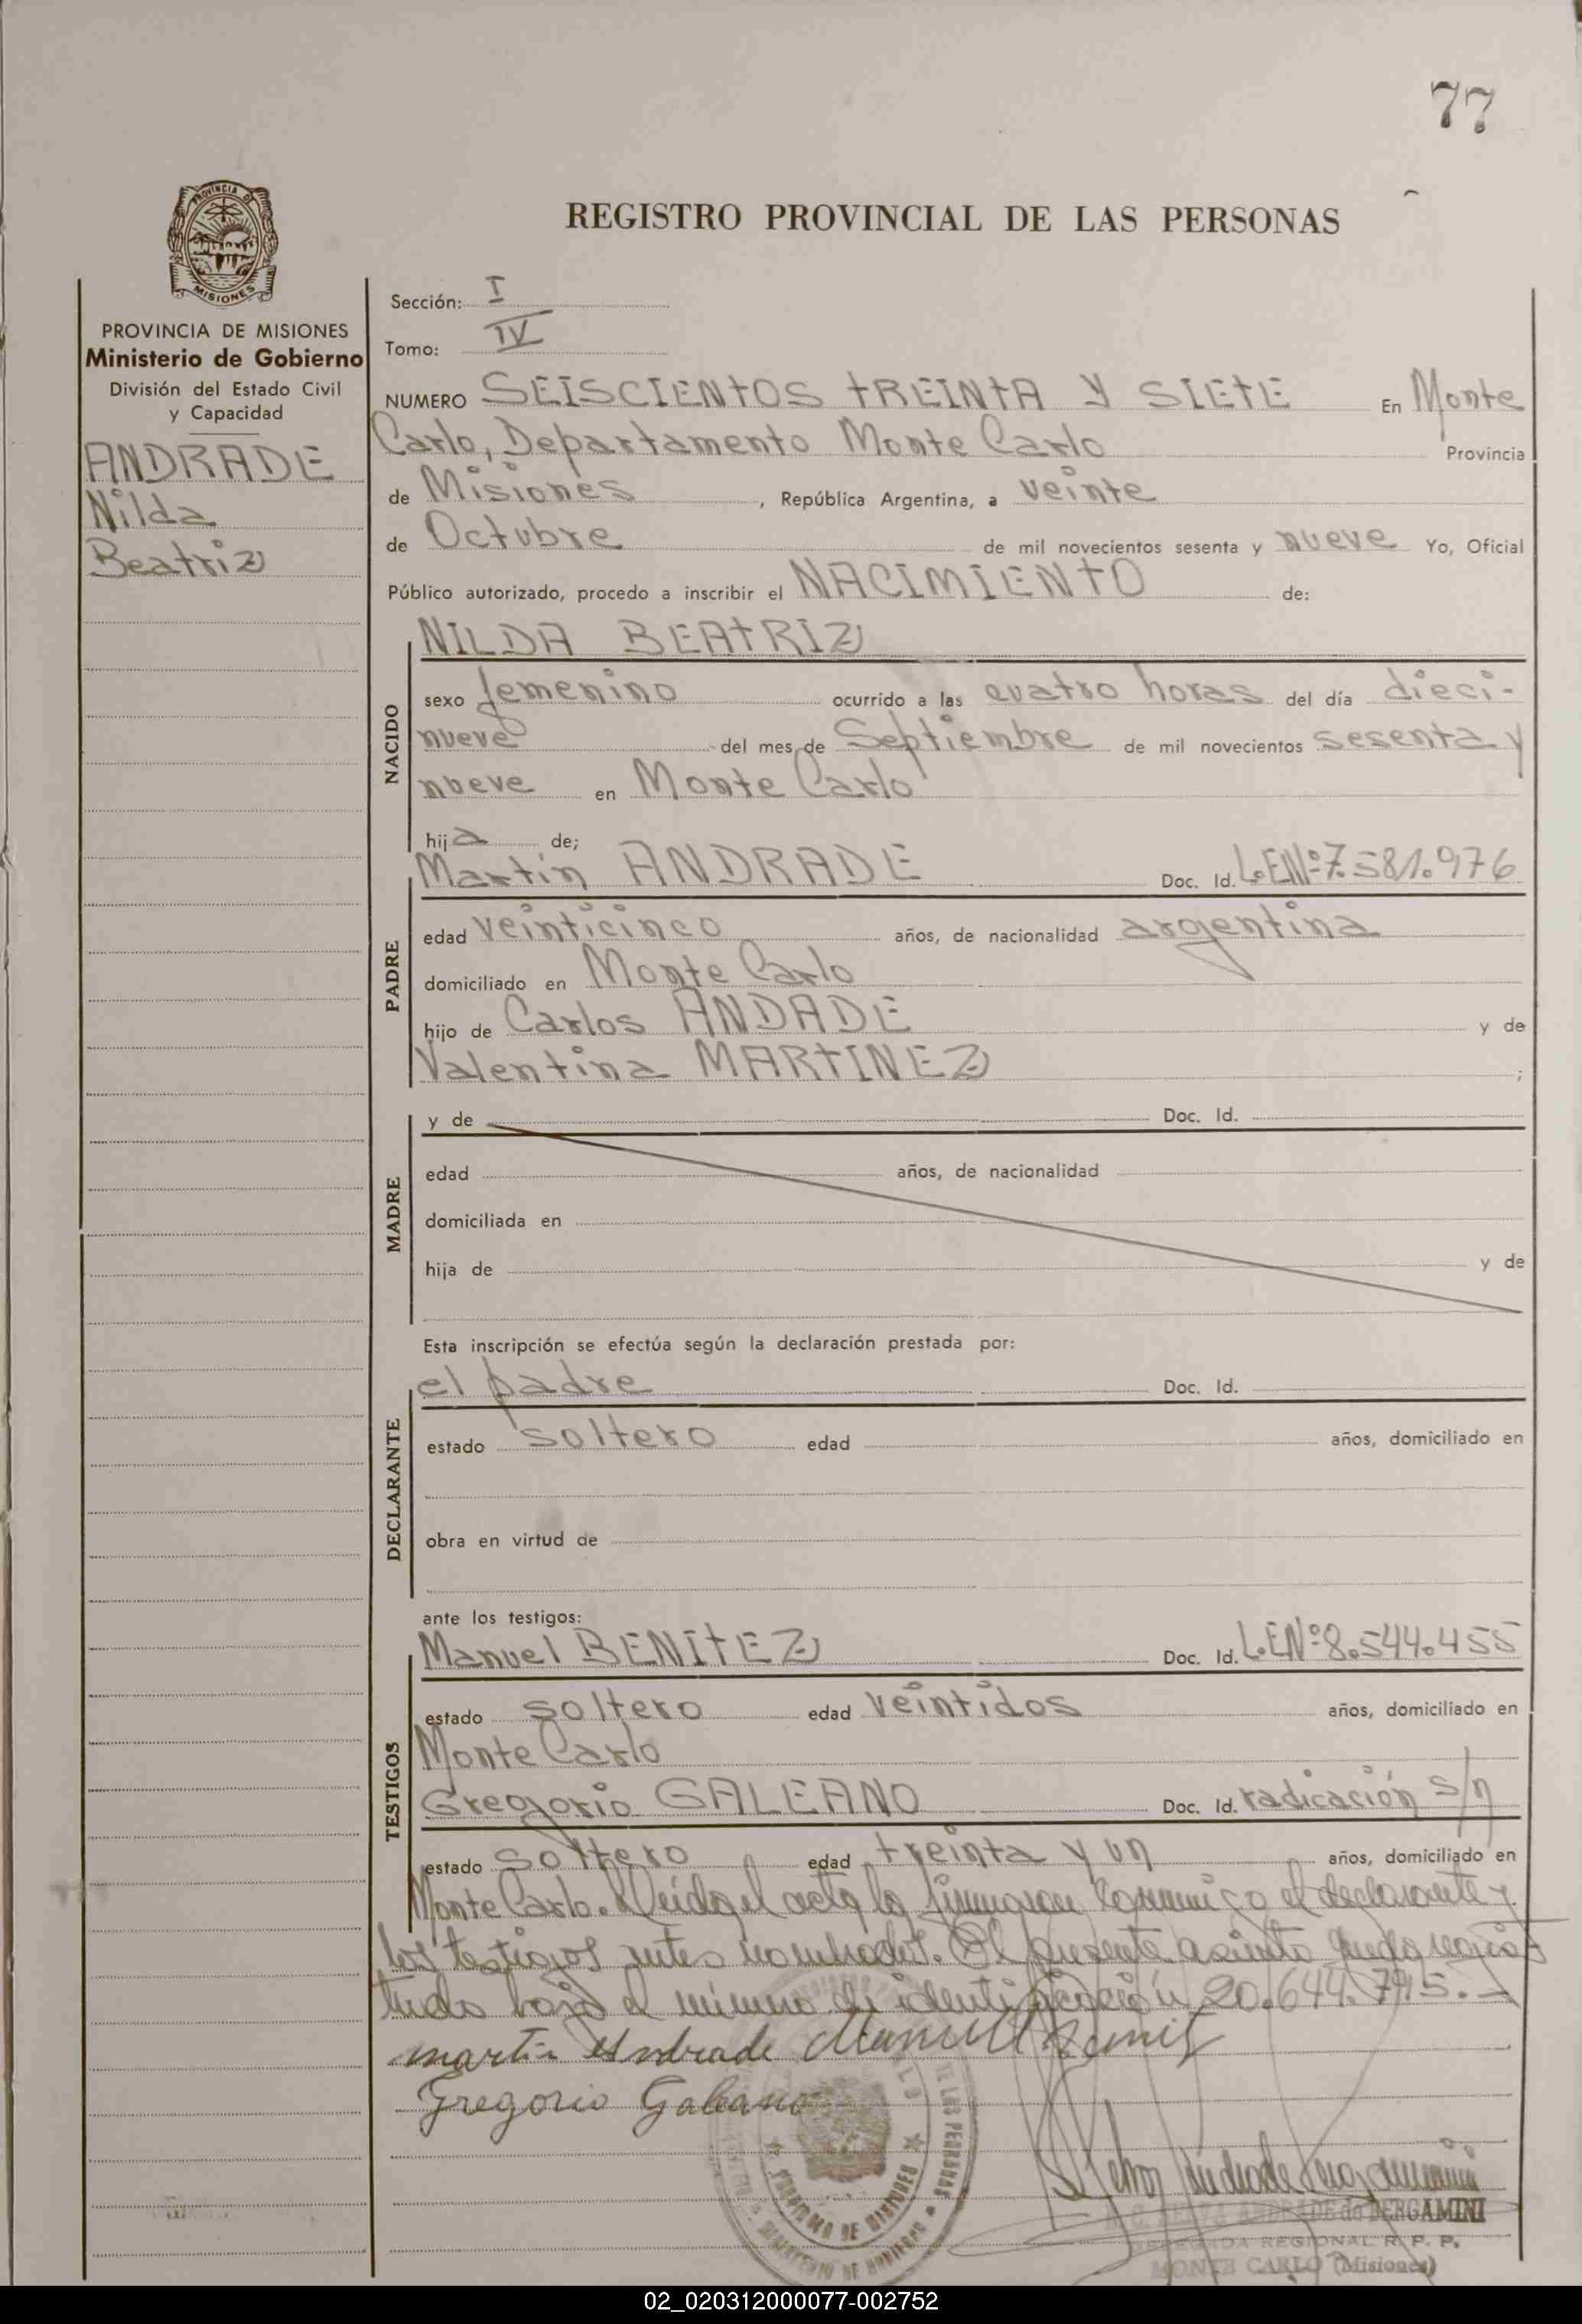 77
PROVINCIA DE
MISIONES
REGISTRO PROVINCIAL DE LAS PERSONAS
PROVINCIA DE MISIONES
Ministerio de Gobierno
División del Estado Civil
y Capacidad
ANDRADE
Nilda
Beatriz
Sección: I
Tomo: IV
NUMERO SEISCIENTOS TREINTA Y SIETE En Monte
Carlo, Departamento Monte Carlo Provincia
de Misiones, República Argentina, a veinte
de Octubre de mil novecientos sesenta y nueve Yo, Oficial
Público autorizado, procedo a inscribir el NACIMIENTO de:
NACIDO
NILDA BEATRIZ
sexo femenino ocurrido a las cuatro horas del día dieci-
nueve del mes de Septiembre de mil novecientos sesenta y
nueve en Monte Carlo
hija de;
PADRE
Martín ANDRADE Doc. Id. L.E.Nº 7.581.976
edad veinticinco años, de nacionalidad argentina
domiciliado en Monte Carlo
hijo de Carlos ANDADE y de
Valentina MARTINEZ ;
MADRE
y de Doc. Id.
edad años, de nacionalidad
domiciliada en
hija de y de
Esta inscripción se efectúa según la declaración prestada por:
DECLARANTE
el padre Doc. Id.
estado soltero edad años, domiciliado en
obra en virtud de
ante los testigos:
TESTIGOS
Manuel BENITEZ Doc. Id. L.E.Nº 8.544.455
estado soltero edad veintidos años, domiciliado en
Monte Carlo
Gregorio GALEANO Doc. Id. radicación s/n
estado soltero edad treinta y un años, domiciliado en
Monte Carlo. Leída el acta la firmaron conmigo el declarante y
los testigos antes nombrados. El presente asiento queda regis
trado bajo el número de identificación 20.644.795.-
Martin Andrade Manuel Benitez
Gregorio Galeano
DE LAS PERSONAS
PROVINCIA DE MISIONES
MINISTERIO DE GOBIERNO
ANDRADE de BERGAMINI
DELEGADA REGIONAL R. P. P.
MONTE CARLO (Misiones)
02_020312000077-002752